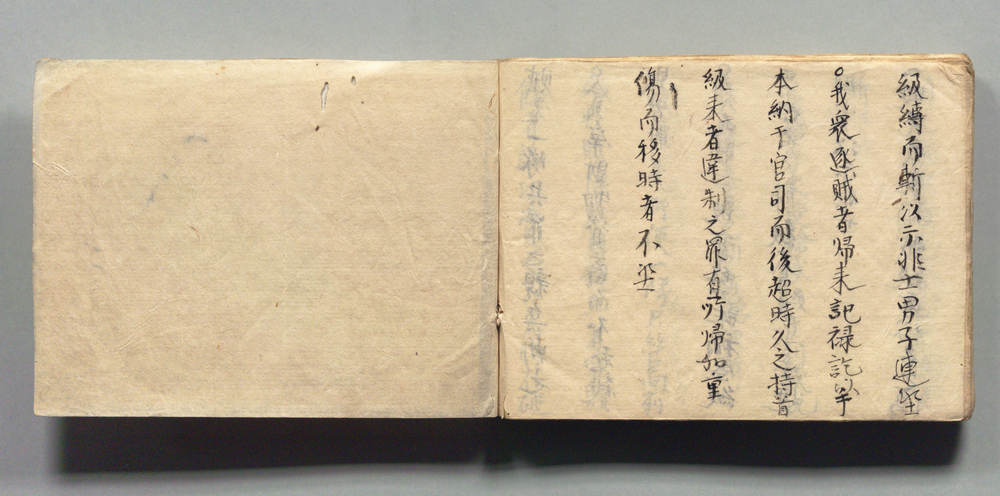 級縛而斬以示非士男子連坐
○我衆逐賊者帰来記禄訖以半
本納于官司而後超時久之持首
級来者違制之罪有所帰如重
傷而移時者不坐